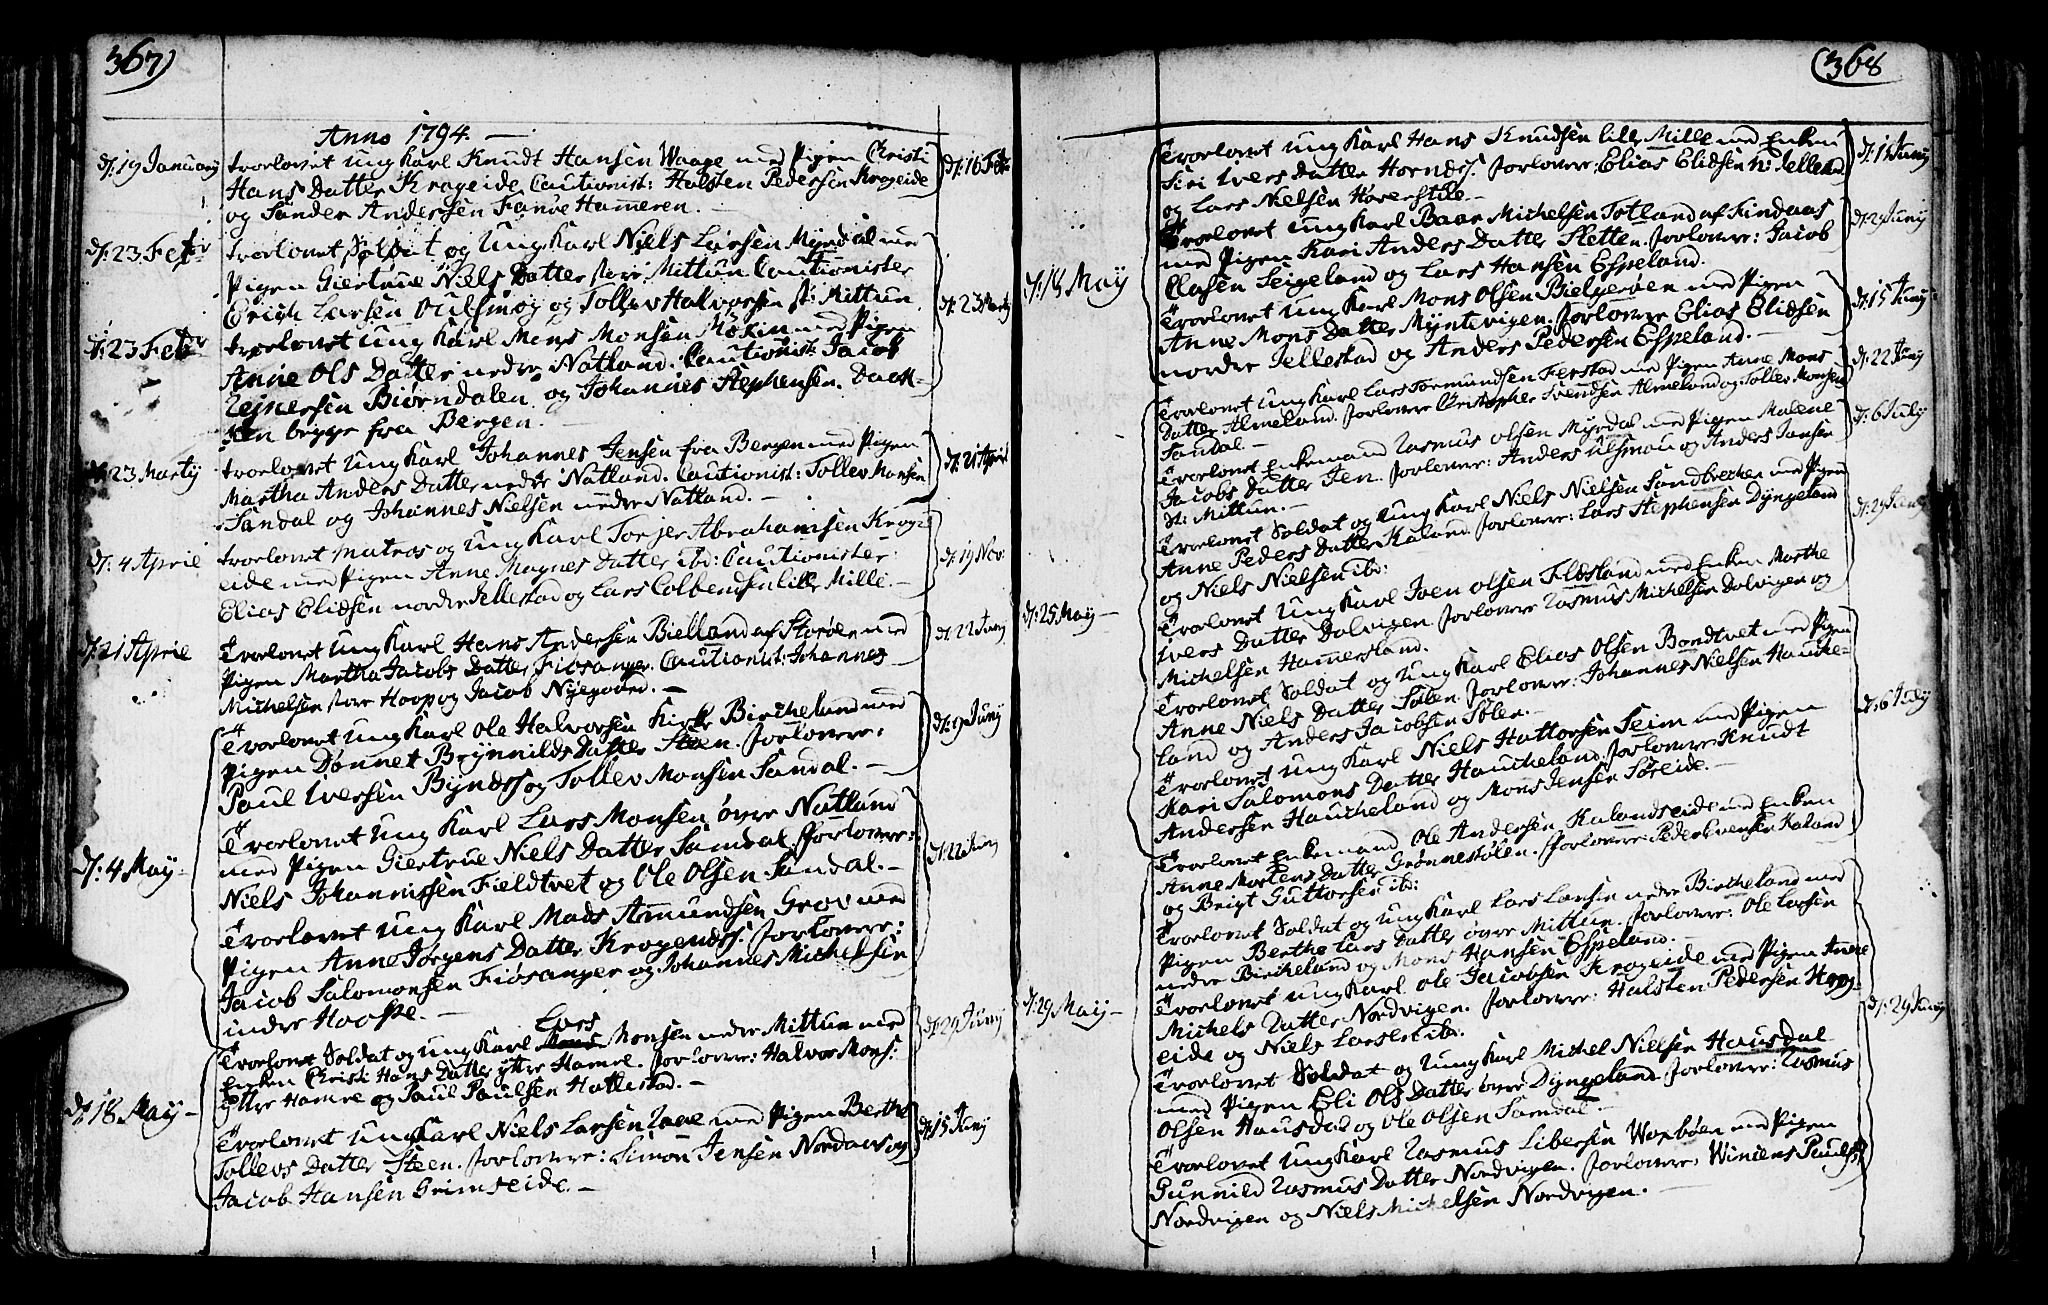 367)
Anno 1794. —
d: 19 January trovlovet ung Karl Knudt Hansen Waage med Pigen Christi d: 16 Feb
Hans Datter Krogeide Cautionist: Halsten Pedersen Krogeide
og Sander Andersen Fanøe Hameren. —
d: 23 Febr trovlovet Soldat og Ung Karl Niels Larsen Myrdal med
Pigen Giertrue Niels Datter store Mittun Cautionister
Erich Larsen Oulsmog og Tollev Halvorsen st: Mittun d: 23 Marty
d: 23 Febr trovlovet ung Karl Mons Monsen med Pigen
Anne Ols Datter nedre Natland. Cautionist: Jacob
Rejnersen Biørndalen og Johannes Stephensen
begge fra Bergen. —
d: 23 Marty trovlovet Ung Karl Johannes Jensen fra Bergen med Pigen
Martha Anders Datter nedre Natland. Cautionist: Tollev Monsen d: 21 April
Sandal og Johannes Nielsen nedre Natland. —
trovlovet Matros og Ung Karl Torjer Abrahamsen Krog=
d: 4 April eide med Pigen Anne Magnes Datter ibd: Cautionister: d: 19 Nov:
Elias Eliæsen nordre Jellestad og Lars Colbendsen lille Mille. —
d: 21 April Trovlovet ung Karl Hans Andersen Bielland af Storøen med d: 22 Juny
Pigen Martha Jacobs Datter Fiøsanger. Cautionist: Johannes
Michelsen store Hoop og Jacob Nyegaard. —
Trovlovet ung Karl Ole Halvorsen Kirke Bircheland med d: 9 Juny
Pigen Dønnet Brynnilds Datter Steen. forlovere:
Paul Iversen Byndes og Tollev Monsen Sandal. —
Trovlovet ung Karl Lars Monsen øvre Natland
d: 4 May — med Pigen Giertrue Niels Datter Sandal. forlovere: d: 22 Juny
Niels Johannissen Fieldtvet og Ole Olsen Sandal. —
Trovlovet ung Karl Mads Asmundsen Grov med
Pigen Anne Jørgens Datter Krogenæss. forlovere:
Jacob Salomonsen Fiøsanger og Johannes Michelsen
indre Hoope. —
Lars
Trovlovet Soldat og Ung Karl Mons Monsen nedre Mittun med d: 29 Juny
Enken Christi Hans Datter ytter Hamre. forlovere: Halvor Mons:
ytter Hamre og Paul Paulsen Hattestad. —
d: 18 May — Trovlovet ung Karl Niels Larsen Raae med Pigen Berthe d: 15 Juny
Tollevs Datter Steen. forlovere: Simon Jensen Nordaas og
Jacob Hansen Grimseide. —
(368
Trovlovet ung Karl Hans Knudsen lille Mille med Enken d: 1 Juny
Siri Ivers Datter Hornæss. forlovere: Elias Eliæsen n: Jellestad
og Lars Nielsen —
Trovlovet ung Karl Baar Michelsen Totland af Findaas d: 29 Juny
med Pigen Kari Anders Datter Sletten. forlovere: Jacob
d: 18 May Clasen Seigeland og Lars Hansen Espeland.
Trovlovet ung Karl Mons Olsen Bielgerøen med Pigen d: 15 Juny
Anne Mons Datter Myntevigen. forlovere Elias Eliæsen
nordre Jellestad og Anders Pedersen Espeland. —
Trovlovet ung Karl Lars Tormundsen Ferstad med Pigen Anne Mons d: 22 Juny
Datter Almeland. forlovere Christopher Svendsen Almeland og Tollev Monsen
Sandal —
Trovlovet Enkemand Rasmus Olsen Myrdal med Pigen Malene d: 6 July
Jacobs Datter Jen. forlovere: Anders Ulsmou og Anders Jansen
St: Mittun. —
Trovlovet Soldat og Ung Karl Niels Nielsen Sandbrechen med Pigen d: 29 Juny
Anne Peders Datter Kaland. forlovere: Lars Stephensen Dyngeland
og Niels Nielsen ibd:
d: 25 May — Trovlovet Ung Karl Joen Olsen Flæsland med Enken Marthe
Ivers Datter Dolvigen forlovere Rasmus Michelsen Dolvigen og
Michelsen Hammersland.
Trovlovet Soldat og Ung Karl Elias Olsen Bondtvet med Pigen
Anne Niels Datter Sølen. forlovere: Johannes Nielsen Hauke= d: 6 July
land og Anders Jacobsen Sølen. —
Trovlovet ung Karl Niels Hattorsen Seim med Pigen
Kari Salomons Datter Haucheland. forlovere Knudt
Andersen Haucheland og Mons Jensen Søreide. —
Trovlovet Enkemand Ole Andersen Kalandseide med Enken
Anne Mortens Datter Grønnestølen. forlovere: Peder Evensen Kaland
og Brigt Guttorsen ibd:
Trovlovet Soldat og Ung Karl Lars Larsen nedre Bircheland med
Pigen Berthe Lars Datter øvre Mittun. forlovere: Ole Larsen
nedre Bircheland og Mons Hansen Espeland. —
d: 29 May — Trovlovet ung Karl Ole Jacobsen Krogeide med Pigen Anne d: 29 Juny
Michels Datter Nordvigen. forlovere: Halsten Pedersen Krog=
eide og Niels Larsen ibd:
Trovlovet Soldat og Ung Karl Michel Nielsen Hausdal
med Pigen Eli Ols Datter øvre Dyngeland. forlovere: Rasmus
Olsen Hausdal og Ole Olsen Sandal. —
Trovlovet Ung Karl Rasmus Libersen Worbøen med Pigen
Gunnild Rasmus Datter Nordvigen. forlovere: Winciens Paulsen
Nordvigen og Niels Michelsen Nordvigen. —